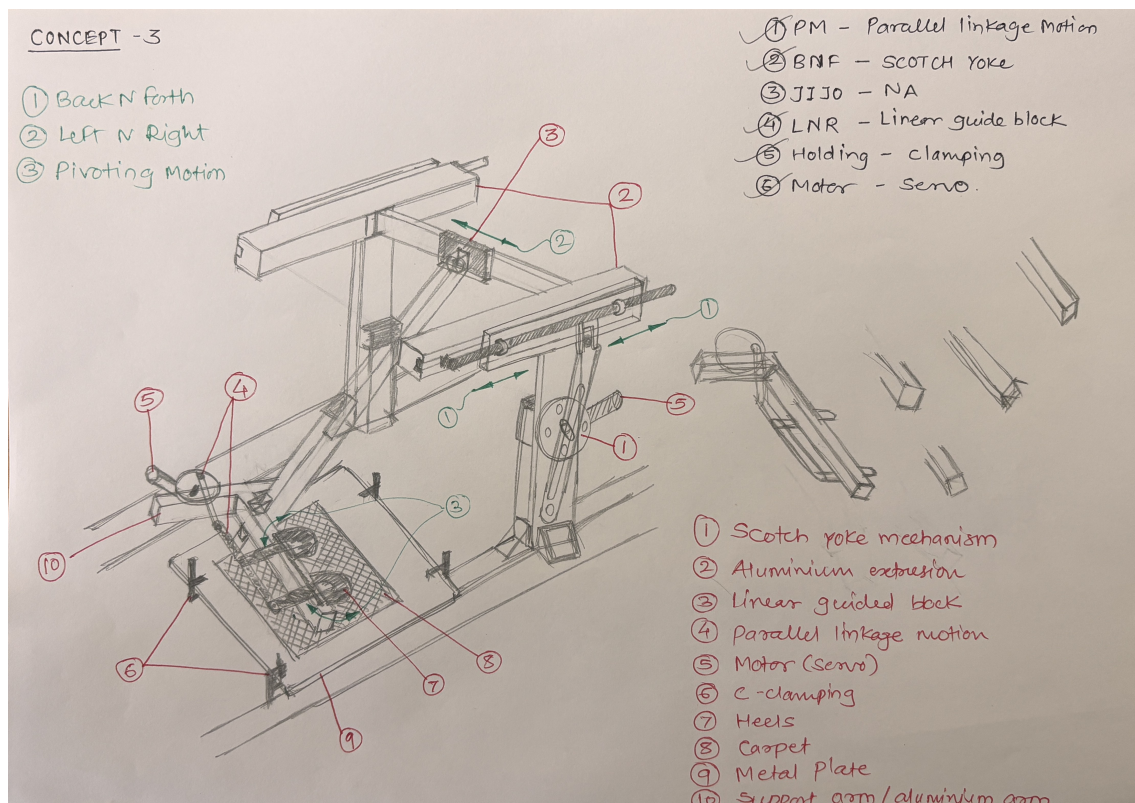 CONCEPT - 3
① Back N forth
② Left N Right
③ Pivoting Motion
① PM - Parallel linkage Motion
② BNF - SCOTCH YOKE
③ JIJO - NA
④ LNR - Linear guide block
⑤ Holding - clamping
⑥ Motor - Servo.
③
②
②
①
④
⑤
⑤
①
①
③
⑩
⑥
⑧
⑦
⑨
① Scotch yoke mechanism
② Aluminium extresion
③ Linear guided block
④ parallel linkage motion
⑤ Motor (Servo)
⑥ C-clamping
⑦ Heels
⑧ Carpet
⑨ Metal Plate
⑩ Support arm / aluminium arm